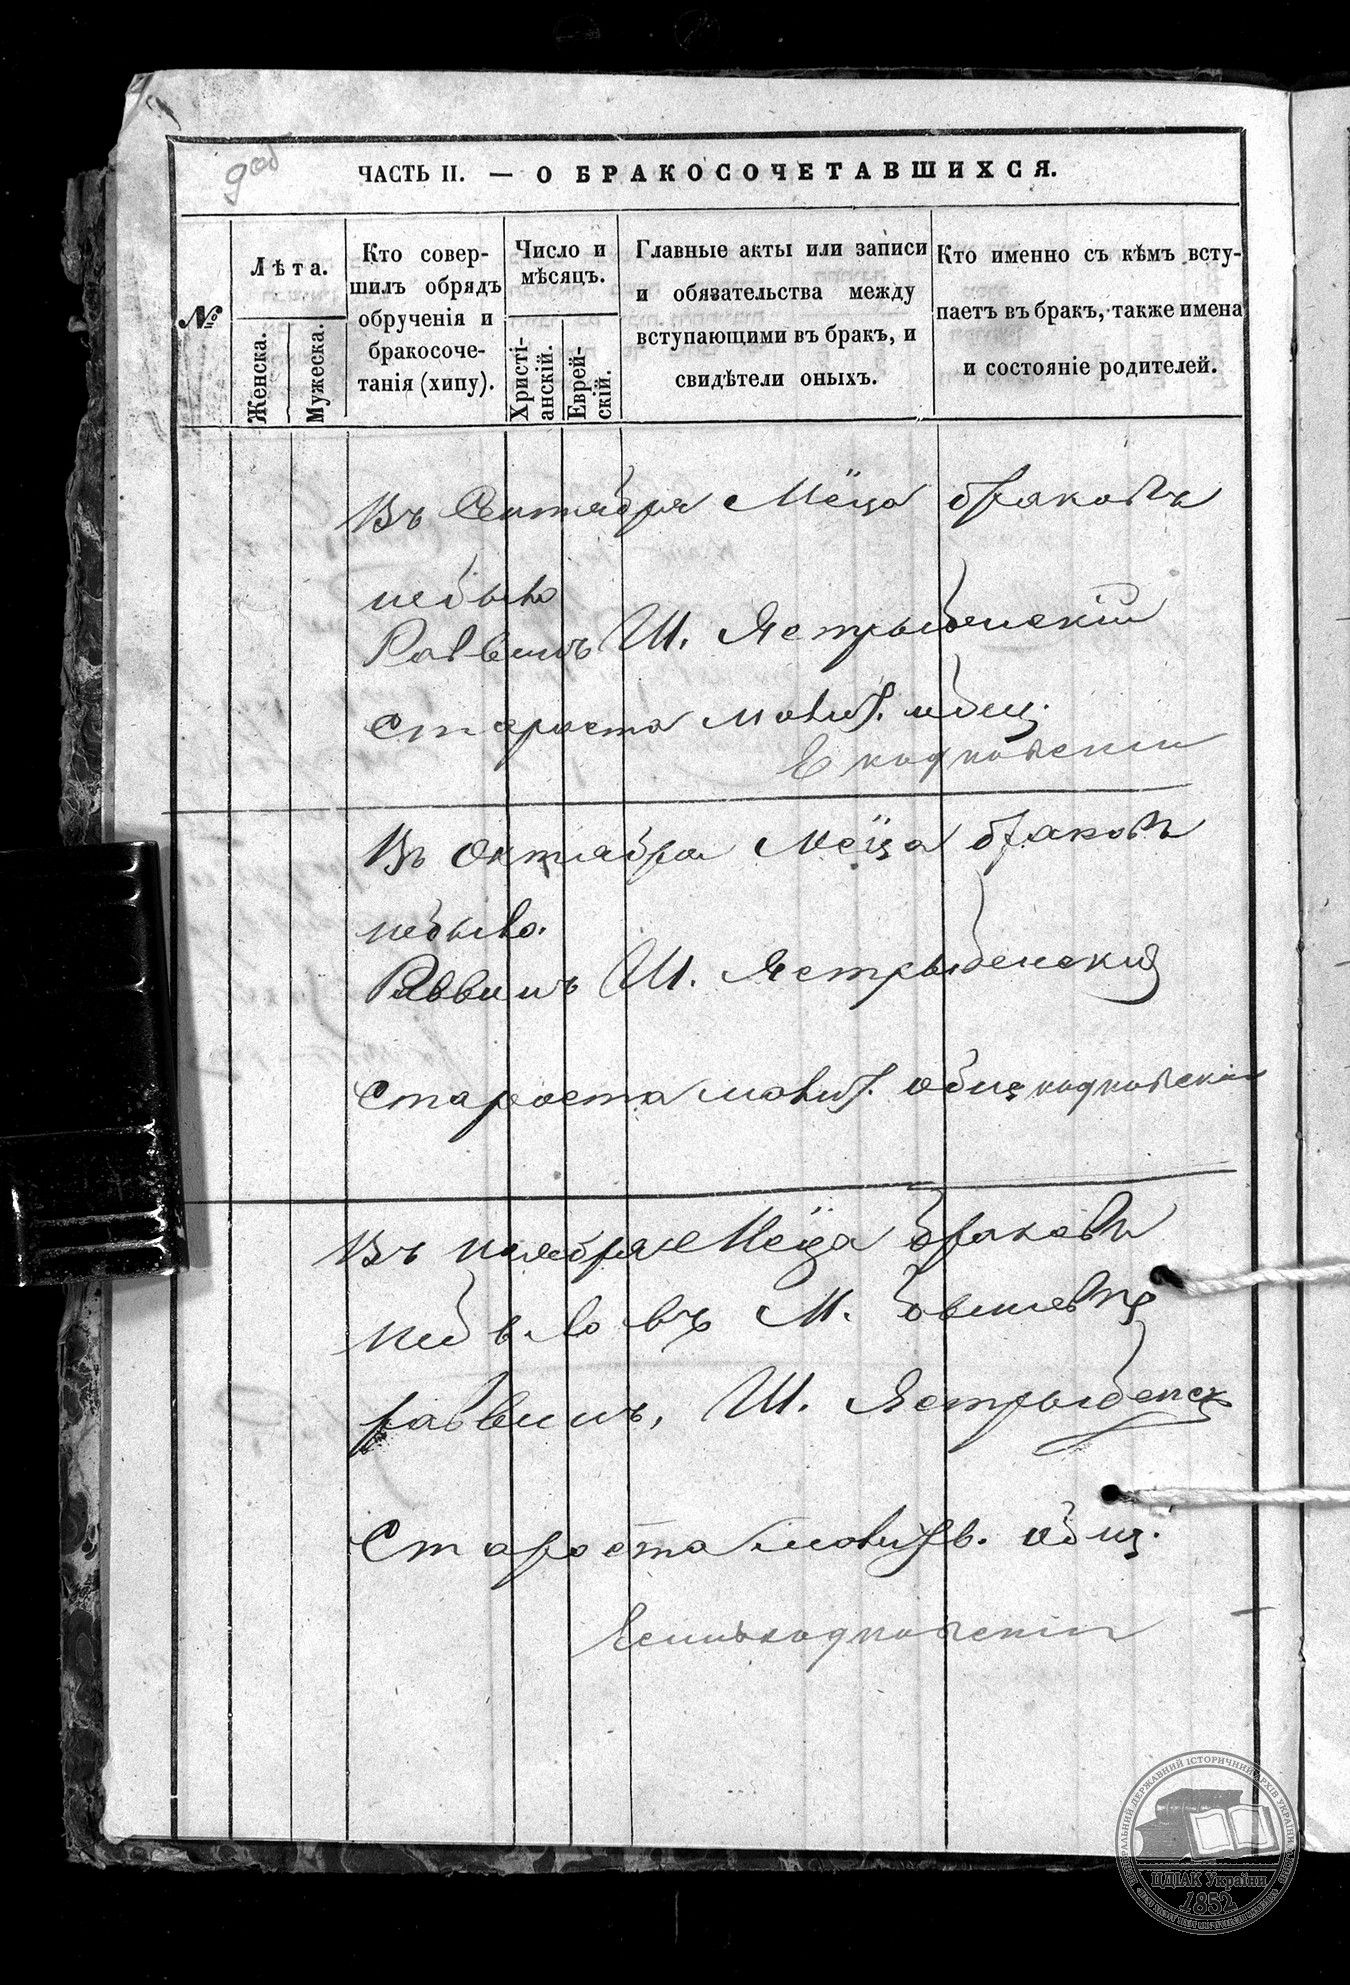 ЧАСТЬ II. — О БРАКОСОЧЕТАВШИХСЯ.
№
Лѣта.
Женска.
Мужеска.
Кто совер-
шилъ обрядъ
обрученія и
бракосоче-
танія (хипу).
Число и
мѣсяцъ.
Христі-
анскій.
Еврей-
скій.
Главные акты или записи
и обязательства между
вступающими въ бракъ, и
свидѣтели оныхъ.
Кто именно съ кѣмъ всту-
паетъ въ бракъ, также имена
и состояніе родителей.
Въ Сентября Мѣца браковъ
небыло
Раввинъ Ш. Ястрыбенскій
Староста молит. общ.
Въ Октября Мѣца браковъ
небыло.
Раввинъ Ш. Ястрыбенскій
Староста молит. общ
Въ ноября Мѣца браковъ
небыло въ М.
раввинъ, Ш. Ястрыбенск
Староста молитв. общ.
ЦДІАК України
1852